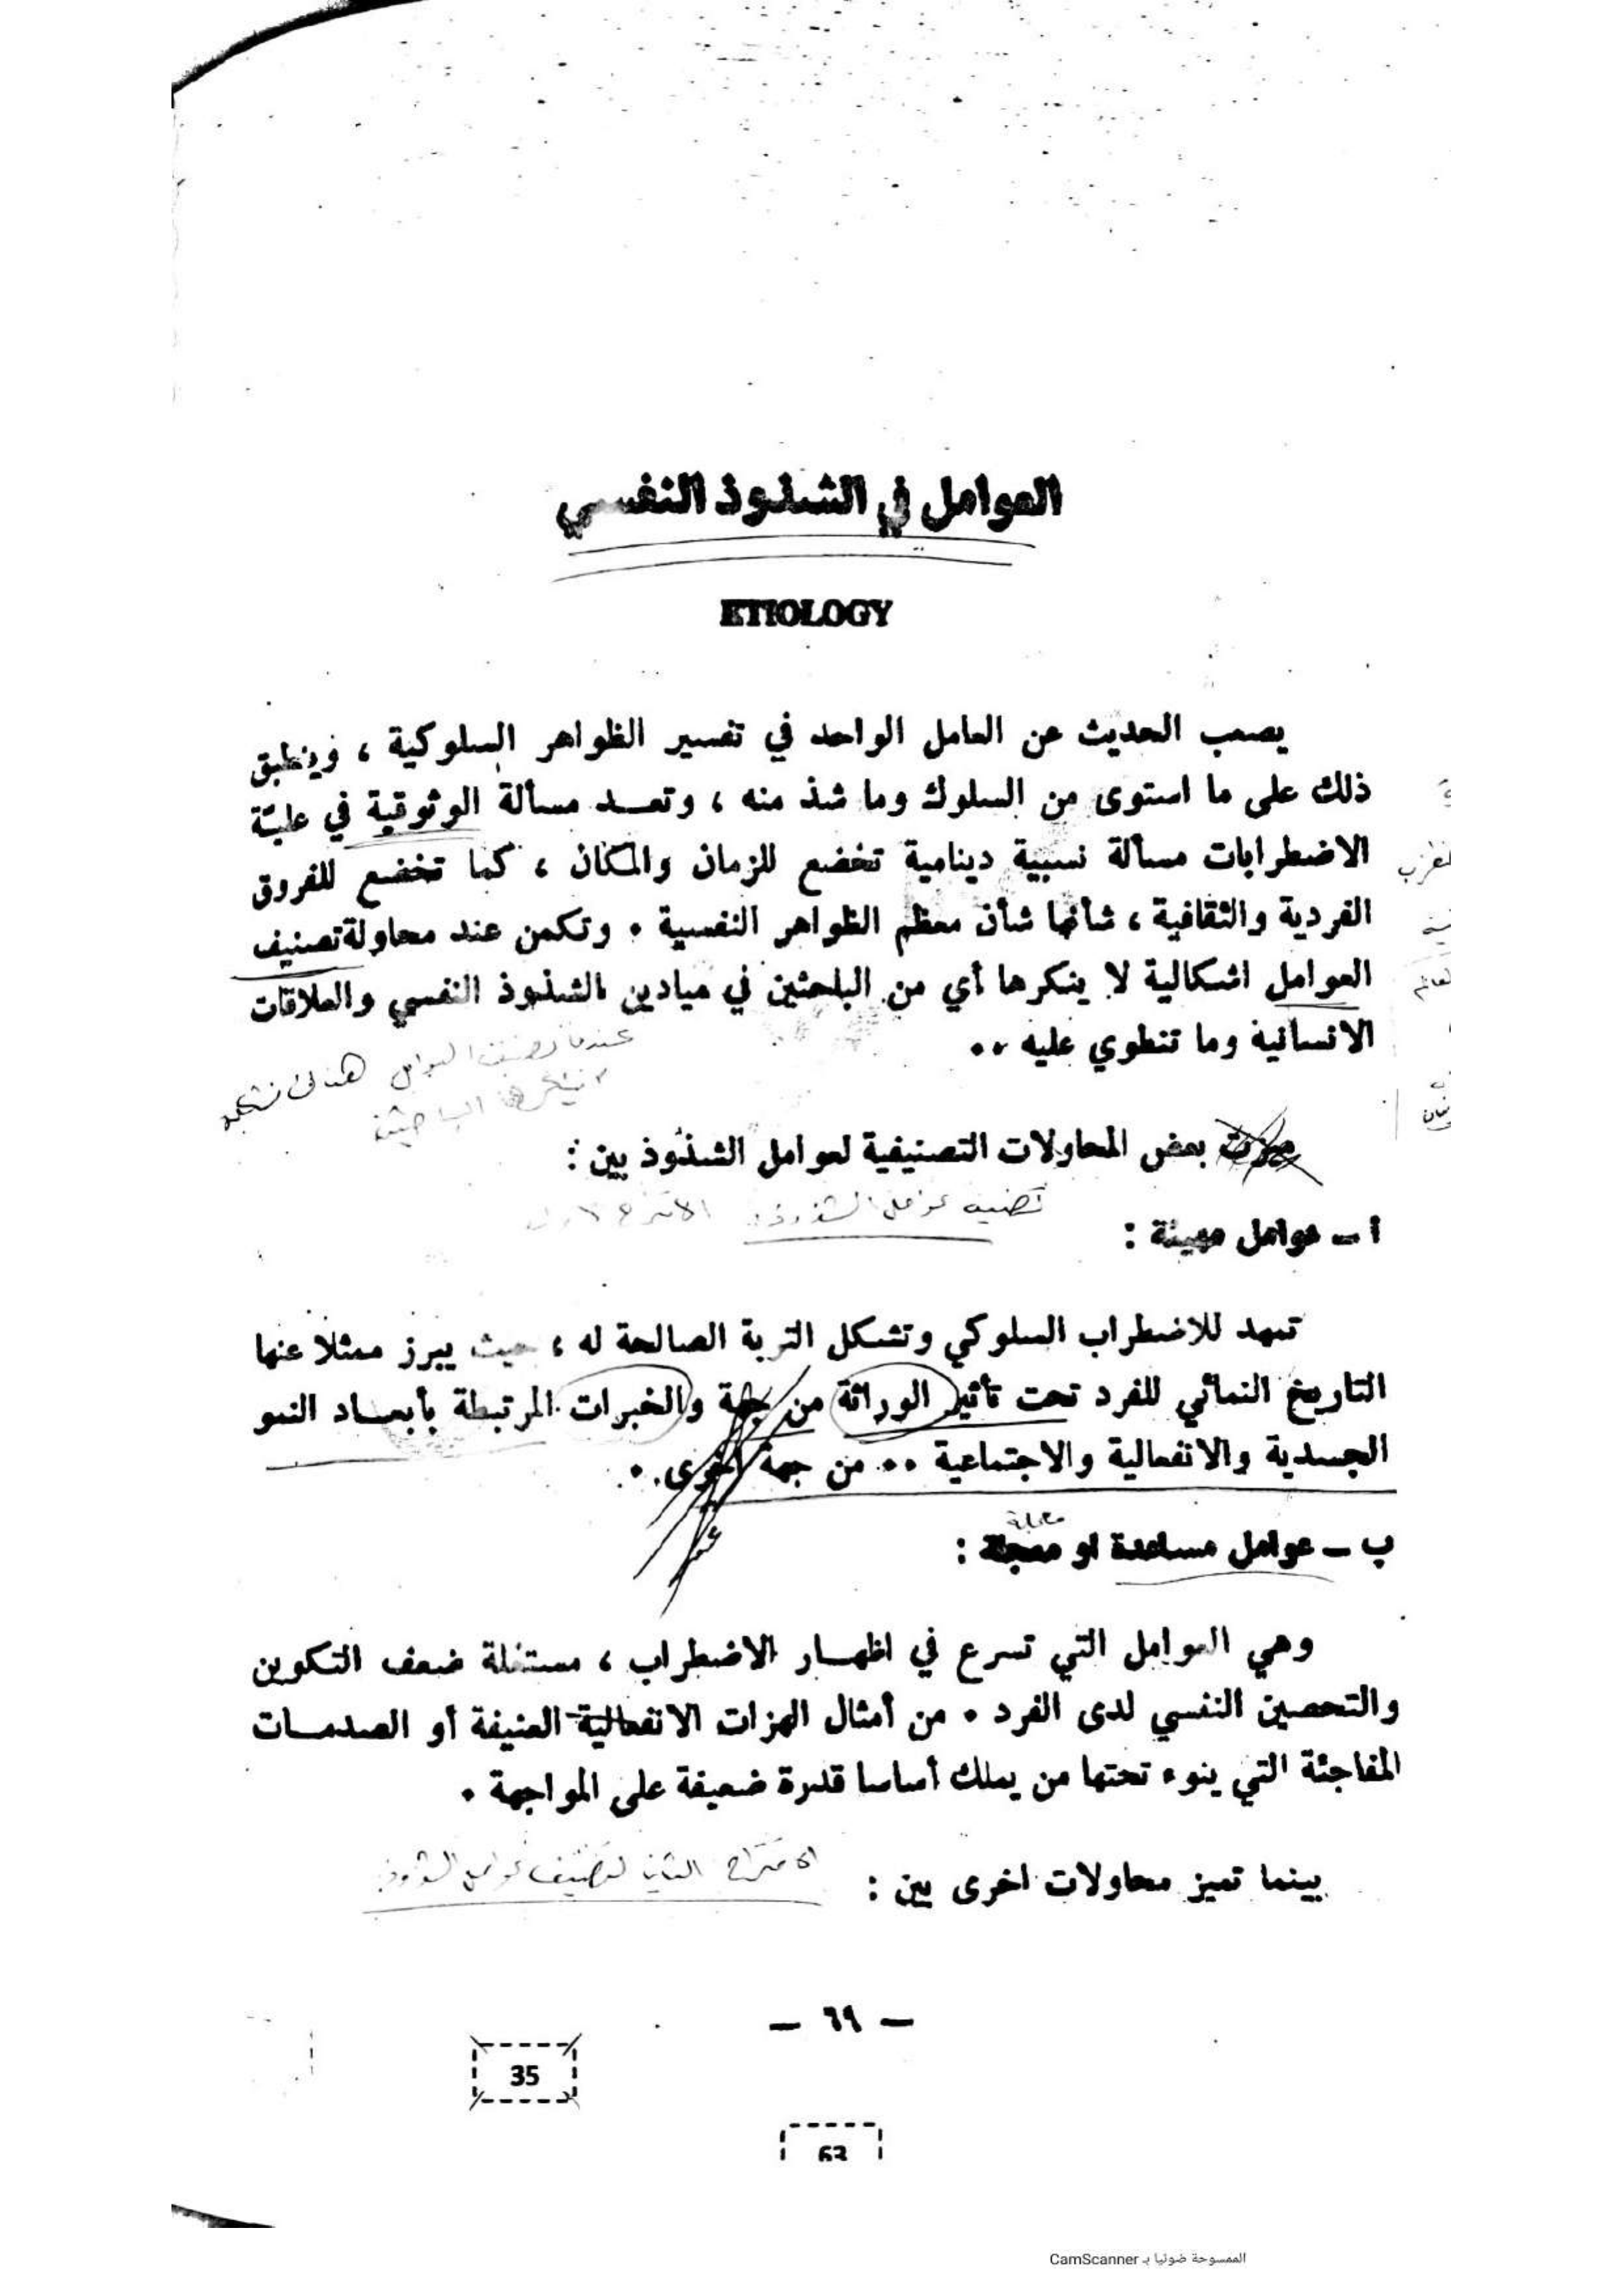 العوامل في الشذوذ النفسي
ETIOLOGY
يصعب الحديث عن العامل الواحد في تفسير الظواهر السلوكية ، وينطبق
ذلك على ما استوى من السلوك وما شذ منه ، وتعــد مسألة الوثوقية في عليّة
الاضطرابات مسألة نسبية دينامية تخضع للزمان والمكان ، كما تخضع للفروق
الفردية والثقافية ، شأنها شأن معظم الظواهر النفسية . وتكمن عند محاولة تصنيف
العوامل اشكالية لا ينكرها أي من الباحثين في ميادين الشذوذ النفسي والعلاقات
الانسانية وما تنطوي عليه ..
عندما نصنف العوامل هنالك
الباحثين
ميزت بعض المحاولات التصنيفية لعوامل الشذوذ بين :
تصنيف عوامل الشذوذ الاقتراح الاول
أ ـ عوامل مهيئة :
تمهد للاضطراب السلوكي وتشكل التربة الصالحة له ، حيث يبرز ممثلا عنها
التاريخ النمائي للفرد تحت تأثير الوراثة من جهة والخبرات المرتبطة بأبعــاد النمو
الجسدية والانفعالية والاجتماعية .. من جهة اخرى .
معجلة
ب ـ عوامل مساعدة او معجلة :
وهي العوامل التي تسرع في اظهــار الاضطراب ، مستغلة ضعف التكوين
والتحصين النفسي لدى الفرد . من أمثال الهزات الانفعالية العنيفة أو الصدمــات
المفاجئة التي ينوء تحتها من يملك أساسا قدرة ضعيفة على المواجهة .
الاقتراح الثاني لتصنيف عوامل الشذوذ
بينما تميز محاولات اخرى بين :
— ٦٩ —
35
63
الممسوحة ضوئيا بـ CamScanner